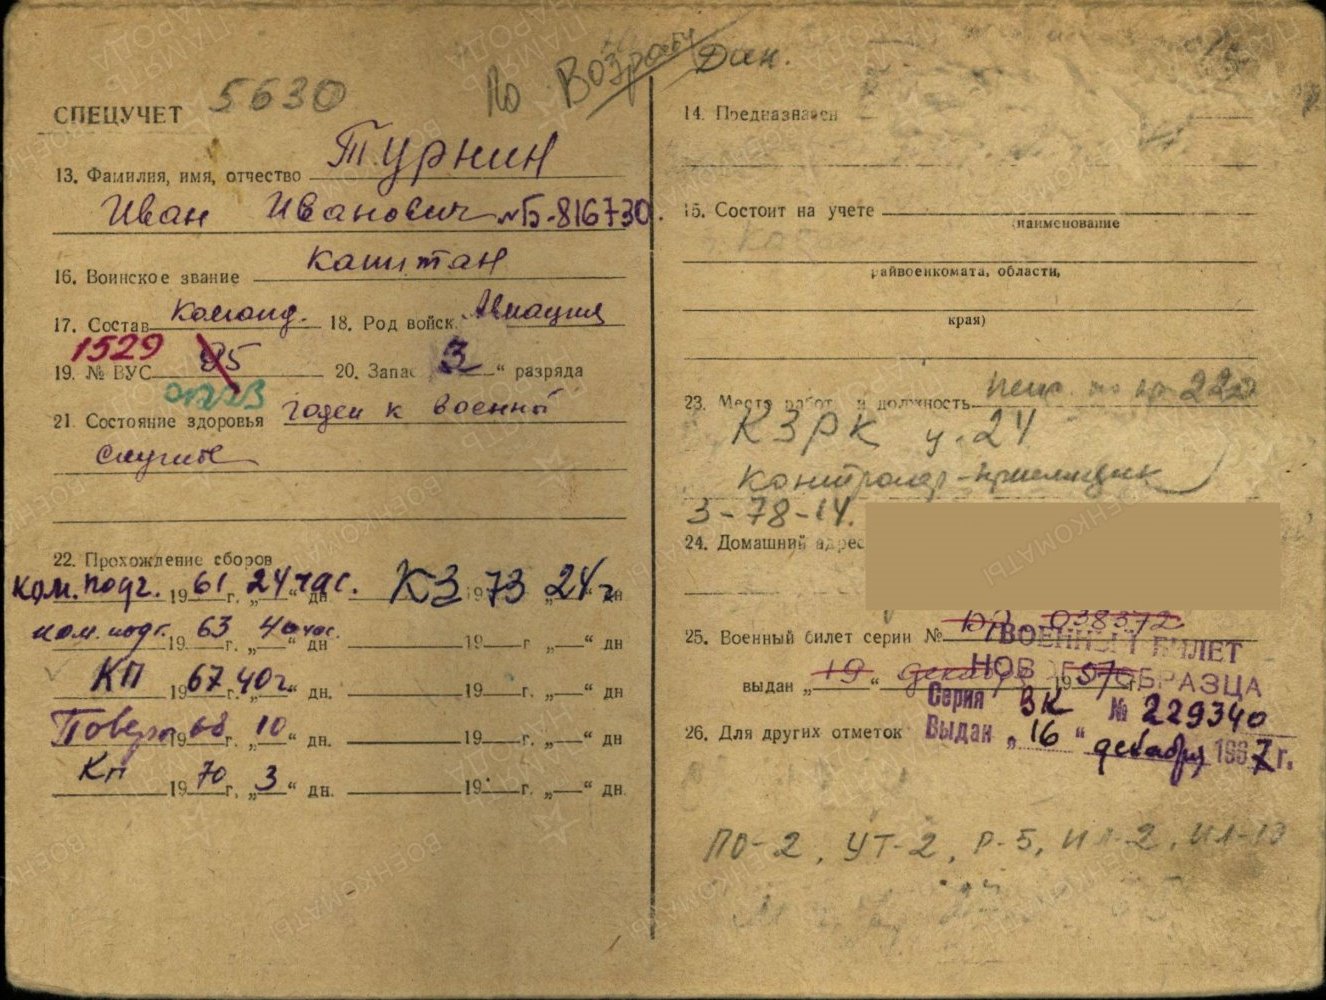 По Возрасту Дан.
СПЕЦУЧЕТ 5630
13. Фамилия, имя, отчество Турнин
Иван Иванович №Б-816730.
16. Воинское звание капитан
17. Состав команд. 18. Род войск Авиация
1529
19. № ВУС 95 20. Запас 3 “ разряда
21. Состояние здоровья годен к военной
службе
22. Прохождение сборов
ком. подг. 1961 г. „24 час.“ дн. КЗ 1973 „24 ч“ дн
ком. подг. 1963 г. „40 час.“ дн 19 г „ “ дн
КП 1967 40 ч. дн. 19 г. „ “ дн
Поверк 1968 г. „10“ дн. 19 г. „ “ дн
Кп 1970 г. „3“ дн. 19 г. „ “ дн.
14. Предназначен
15. Состоит на учете
(наименование
райвоенкомата, области,
края)
23. Место работ и должность пенс. по 220
КЗРК ц. 24
контролер-приемщик
3-78-14.
24. Домашний адрес
25. Военный билет серии № 038372
ВОЕННЫЙ БИЛЕТ
выдан „19“ декабря 1957 г.
НОВ ОБРАЗЦА
Серия ВК № 229340
26. Для других отметок Выдан „16“ декабря 1967 г.
ПО-2, УТ-2, Р-5, Ил-2, Ил-10